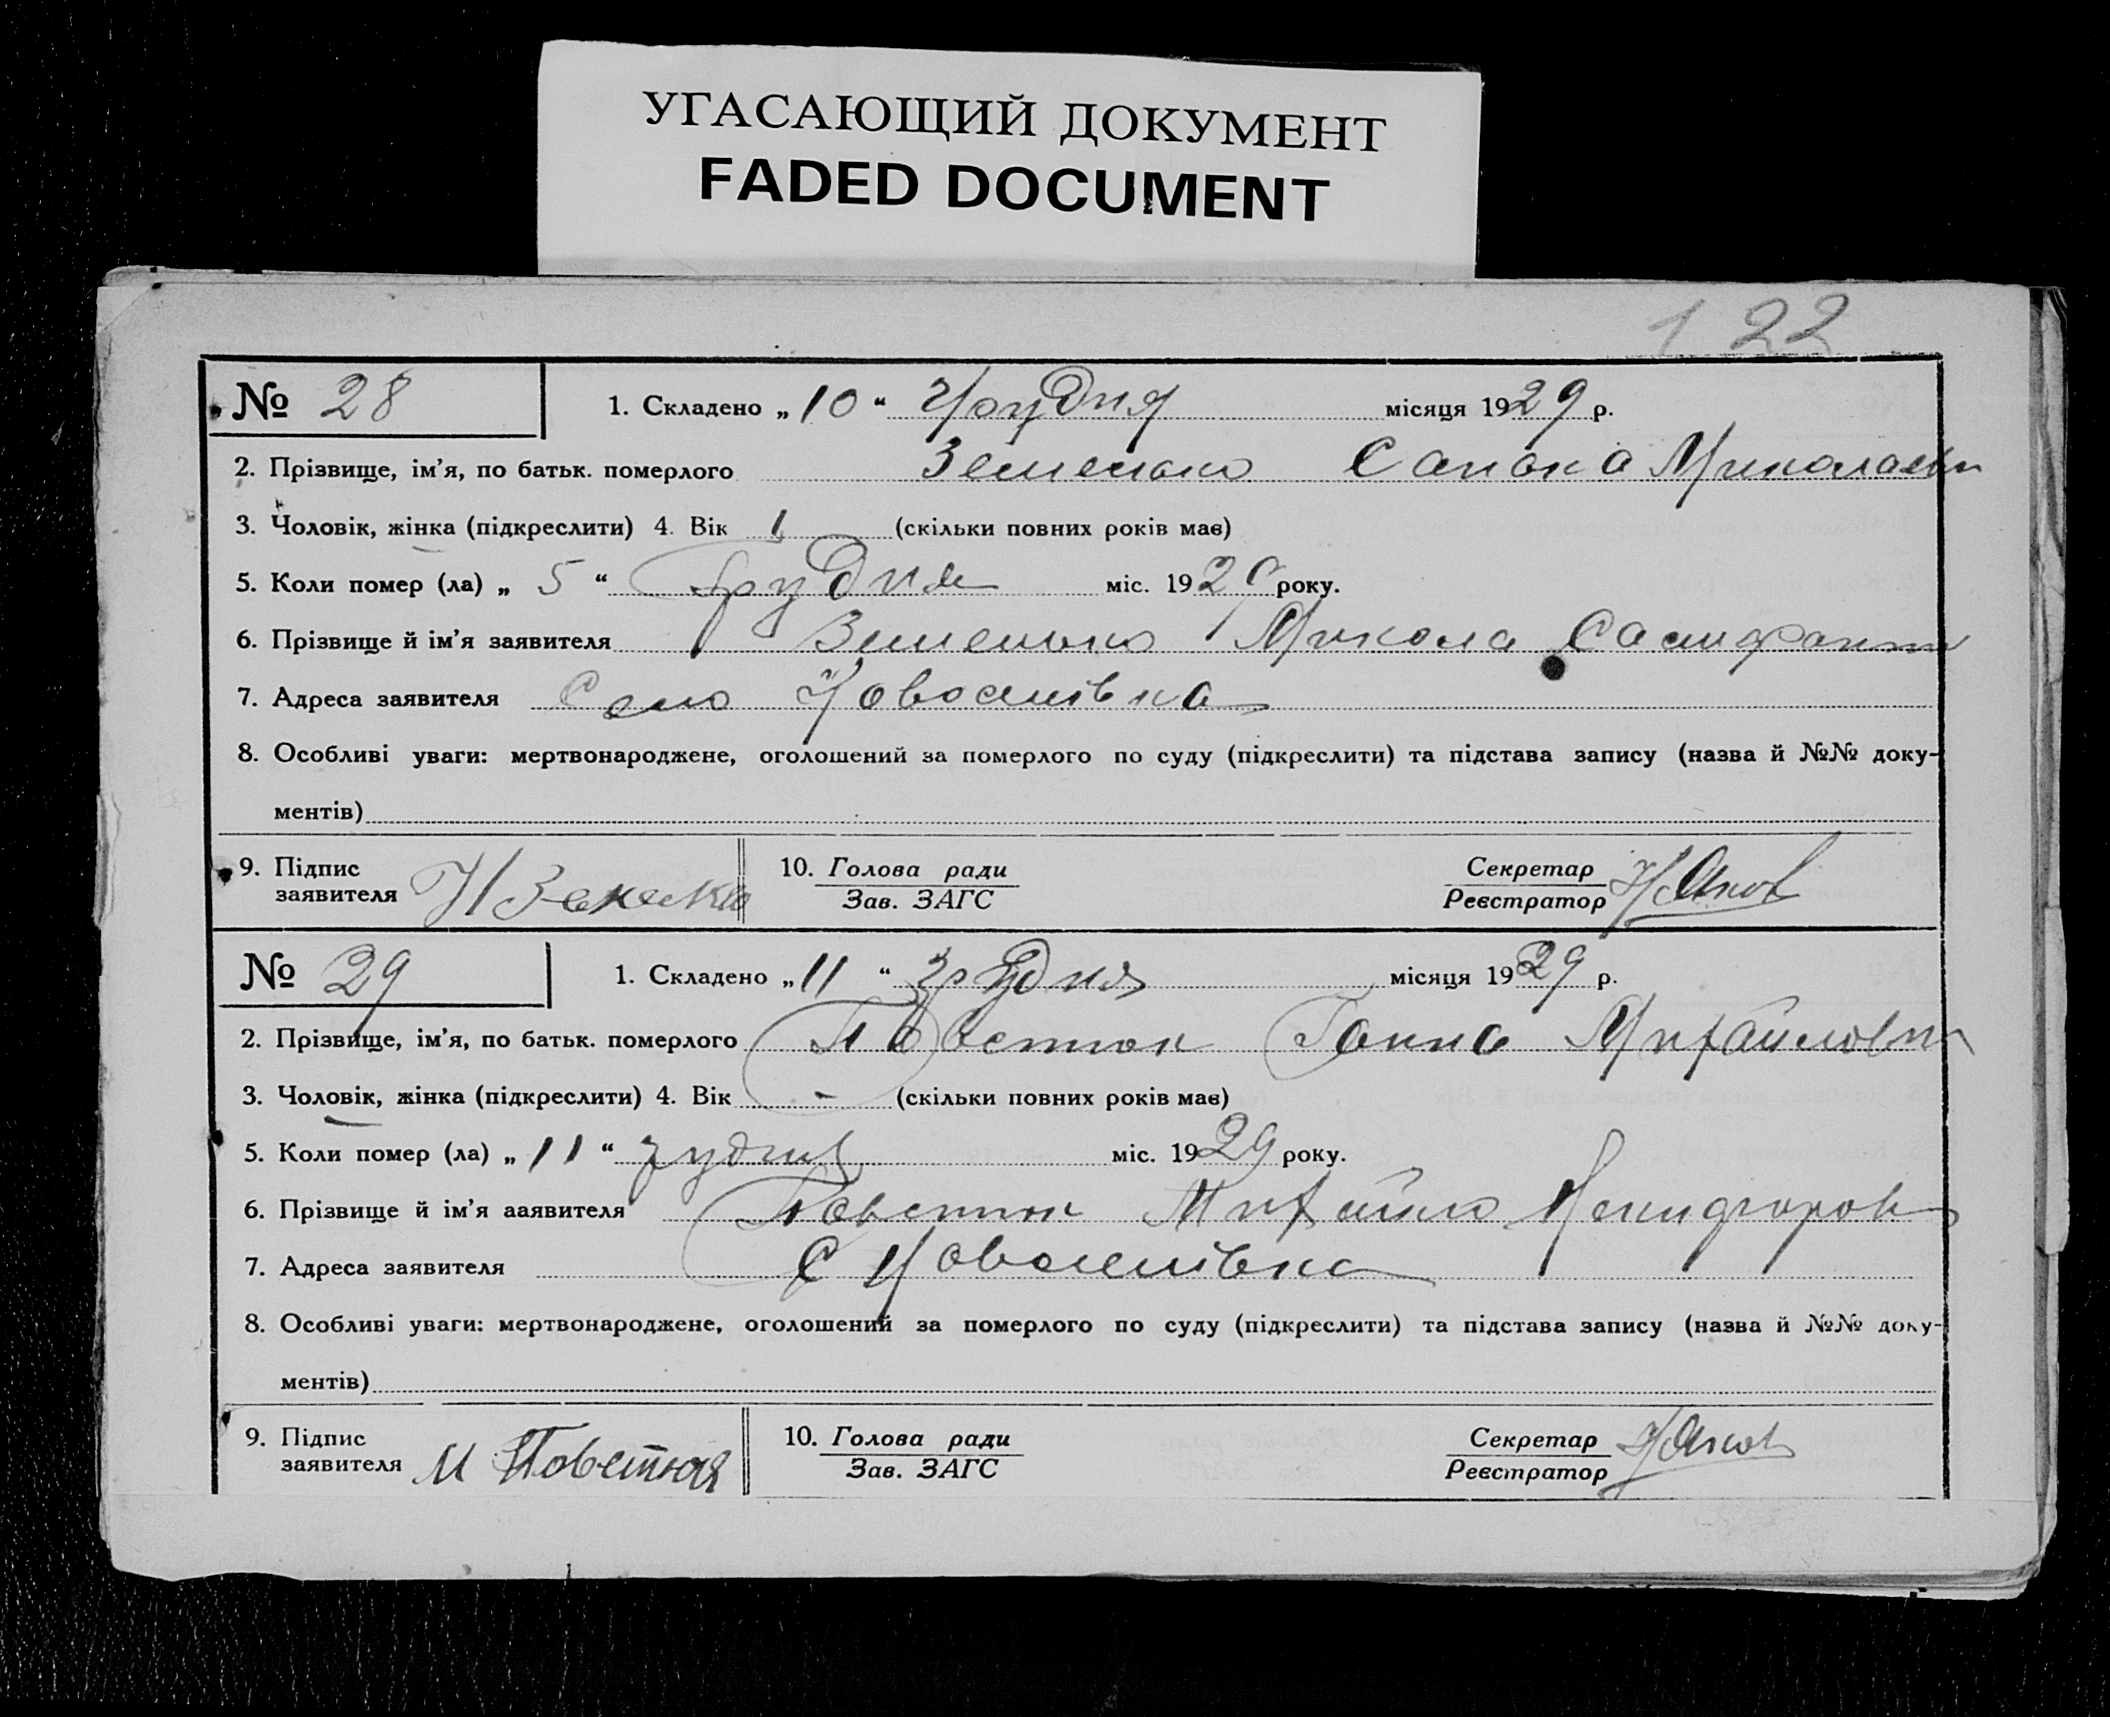 УГАСАЮЩИЙ ДОКУМЕНТ
FADED DOCUMENT
122
№ 28 1. Складено „10“ Грудня місяця 1929 р.
2. Прізвище, ім’я, по батьк. померлого
3. Чоловік, жінка (підкреслити) 4. Вік 1 (скільки повних років має)
5. Коли помер (ла) „5“ Грудня міс. 1929 року.
6. Прізвище й ім’я заявителя Микола
7. Адреса заявителя Село Новоселівка
8. Особливі уваги: мертвонароджене, оголошений за померлого по суду (підкреслити) та підстава запису (назва й №№ доку-
ментів)
9. Підпис заявителя
10. Голова ради
Зав. ЗАГС
Секретар
Реєстратор
№ 29 1. Складено „11“ грудня місяця 1929 р.
2. Прізвище, ім’я, по батьк. померлого Повстюк Ганна
3. Чоловік, жінка (підкреслити) 4. Вік - (скільки повних років має)
5. Коли помер (ла) „11“ грудня міс. 1929 року.
6. Прізвище й ім’я заявителя Михайло
7. Адреса заявителя С Новоселівка
8. Особливі уваги: мертвонароджене, оголошений за померлого по суду (підкреслити) та підстава запису (назва й №№ доку-
ментів)
9. Підпис заявителя М
10. Голова ради
Зав. ЗАГС
Секретар
Реєстратор